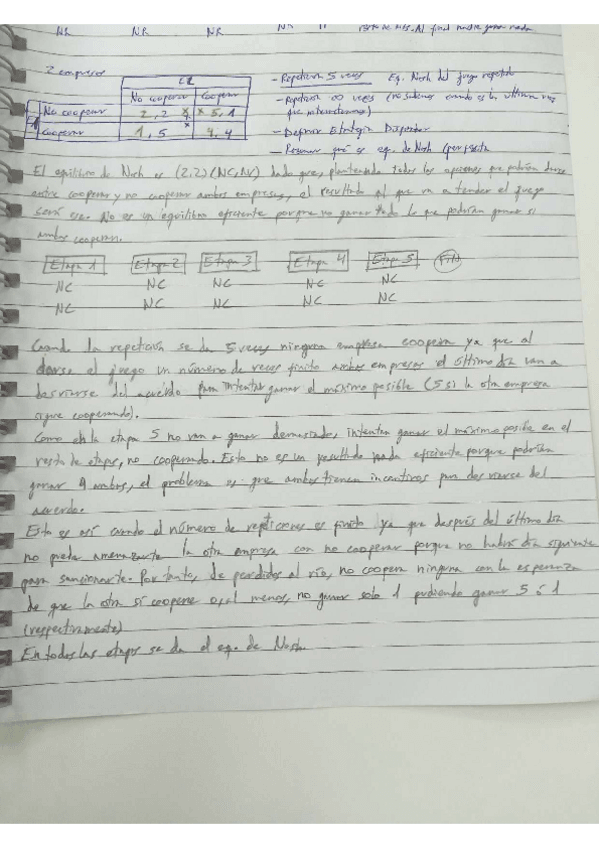 NR NR NR NR al final nadie gana nada
2 empresas
E2
No cooperar Cooperar
E1 No cooperar 2, 2 5, 1
Cooperar 1, 5 4, 4
- Repetición 5 veces Eq. Nash del juego repetido
- Repetición ∞ veces (no sabemos cuando es la última vez
que interactuamos)
- Definir Estrategia Disparador
- Razonar qué es eq. de Nash (perfecto
El equilibrio de Nash es (2,2) (NC, NC) dado que, planteando todas las opciones que podrían darse
entre cooperar y no cooperar ambas empresas, el resultado al que va a tender el juego
será ese. No es un equilibrio eficiente porque no ganan todo lo que podrían ganar si
ambas cooperan.
Etapa 1 Etapa 2 Etapa 3 Etapa 4 Etapa 5 FIN
NC NC NC NC NC
NC NC NC NC NC
Cuando la repetición se da 5 veces ninguna empresa coopera ya que al
darse el juego un número de veces finito ambas empresas el último día van a
desviarse del acuerdo para intentar ganar el máximo posible (5 si la otra empresa
sigue cooperando).
Como en la etapa 5 no van a ganar demasiado, intentan ganar el máximo posible en el
resto de etapas, no cooperando. Esto no es un resultado nada eficiente porque podrían
ganar 4 ambas, el problema es que ambas tienen incentivos para desviarse del
acuerdo.
Esto es así cuando el número de repeticiones es finito ya que después del último día
no puede amenazarte la otra empresa con no cooperar porque no habrá día siguiente
para sancionarte. Por tanto, de perdidos al río, no coopera ninguna con la esperanza
de que la otra sí coopere o, al menos, no ganar solo 1 pudiendo ganar 5 ó 1
(respectivamente)
En todas las etapas se da el eq. de Nash.